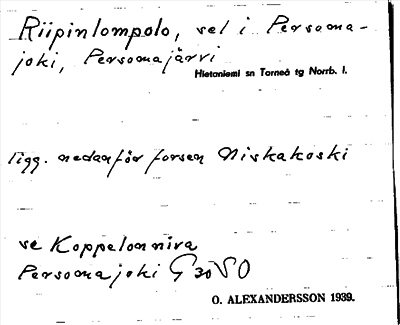 Riipinlompolo, sel i Persoma-
joki, Persomajärvi
Hietaniemi sn Torneå tg Norrb. l.
ligg. nedanför forsen Niskakoski
se Koppelonniva
Persomajoki G 30 SO
O. ALEXANDERSSON 1939.